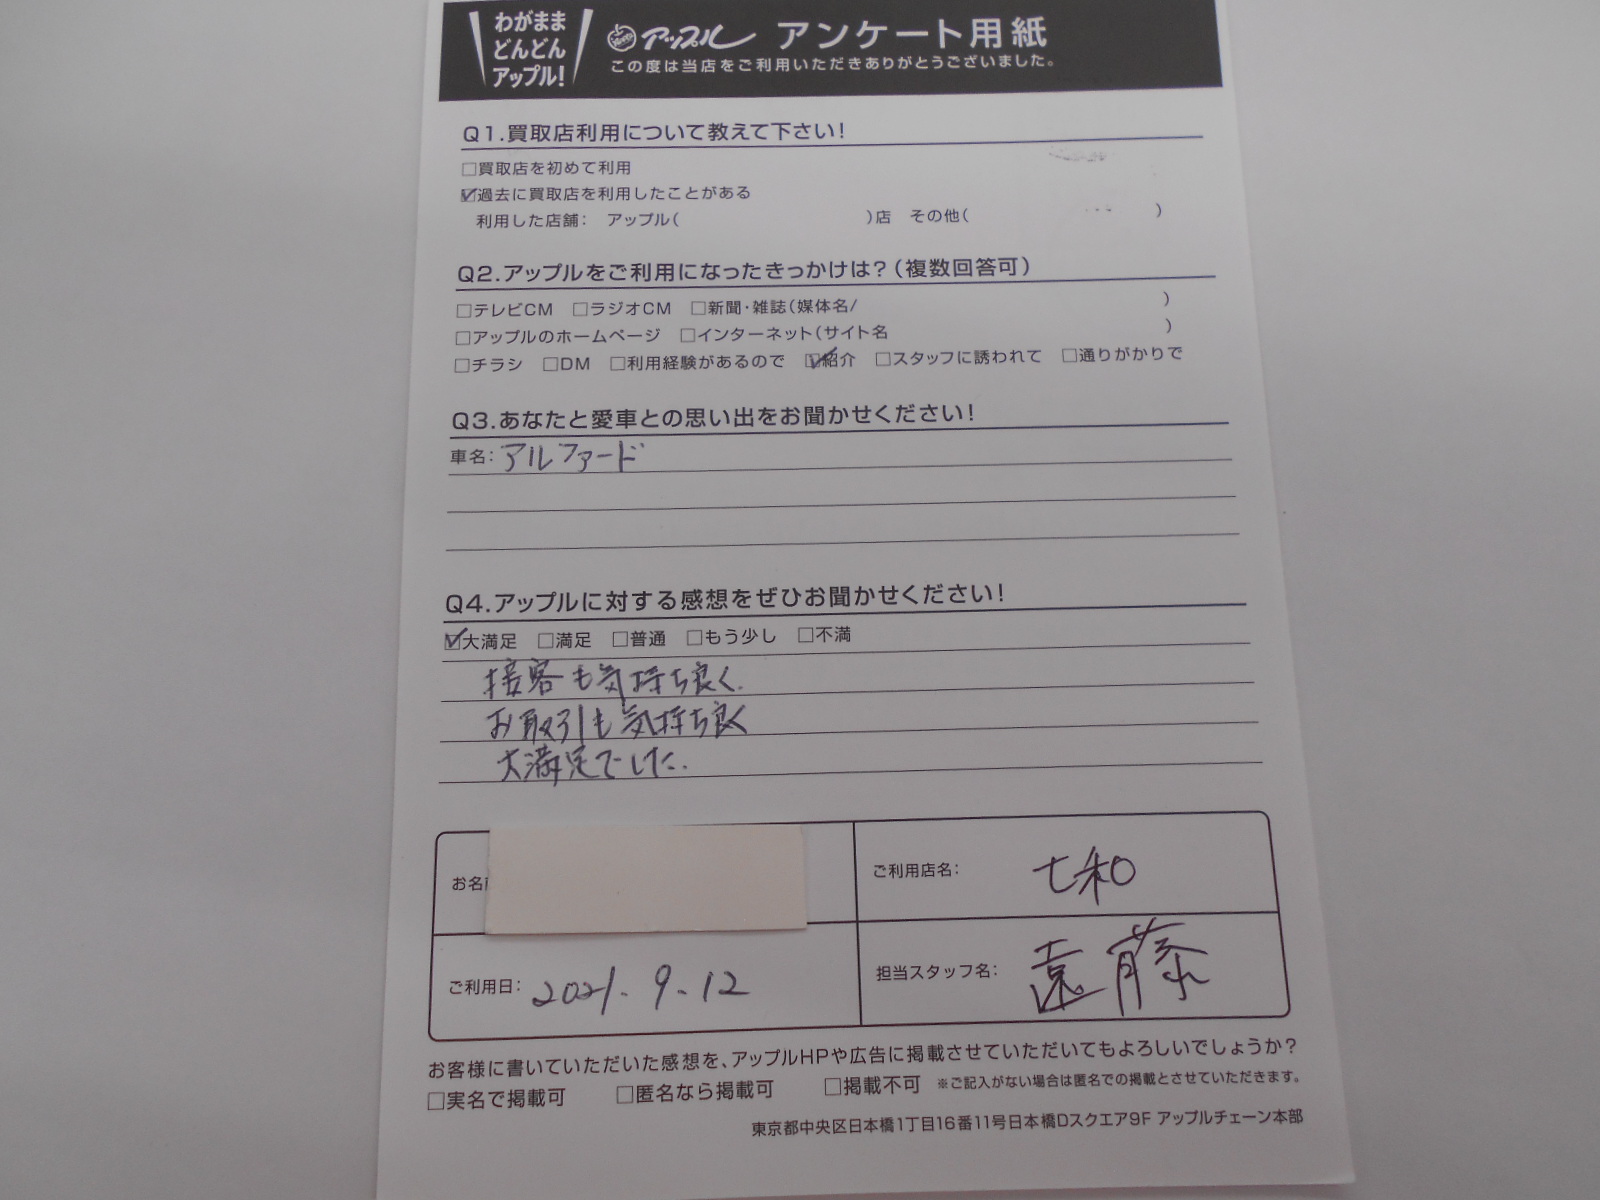 わがまま
どんどん
アップル!
アップル アンケート用紙
この度は当店をご利用いただきありがとうございました。
Q1.買取店利用について教えて下さい!
□買取店を初めて利用
☑過去に買取店を利用したことがある
利用した店舗: アップル( )店 その他( )
Q2.アップルをご利用になったきっかけは?(複数回答可)
□テレビCM □ラジオCM □新聞・雑誌(媒体名/ )
□アップルのホームページ □インターネット(サイト名 )
□チラシ □DM □利用経験があるので ☑紹介 □スタッフに誘われて □通りがかりで
Q3.あなたと愛車との思い出をお聞かせください!
車名: アルファード
Q4.アップルに対する感想をぜひお聞かせください!
☑大満足 □満足 □普通 □もう少し □不満
接客も気持ち良く
お取引も気持ち良く
大満足でした.
お名
ご利用店名: 七和
ご利用日: 2021.9.12
担当スタッフ名: 遠藤
お客様に書いていただいた感想を、アップルHPや広告に掲載させていただいてもよろしいでしょうか?
□実名で掲載可 □匿名なら掲載可 □掲載不可 ※ご記入がない場合は匿名での掲載とさせていただきます。
東京都中央区日本橋1丁目16番11号日本橋Dスクエア9F アップルチェーン本部